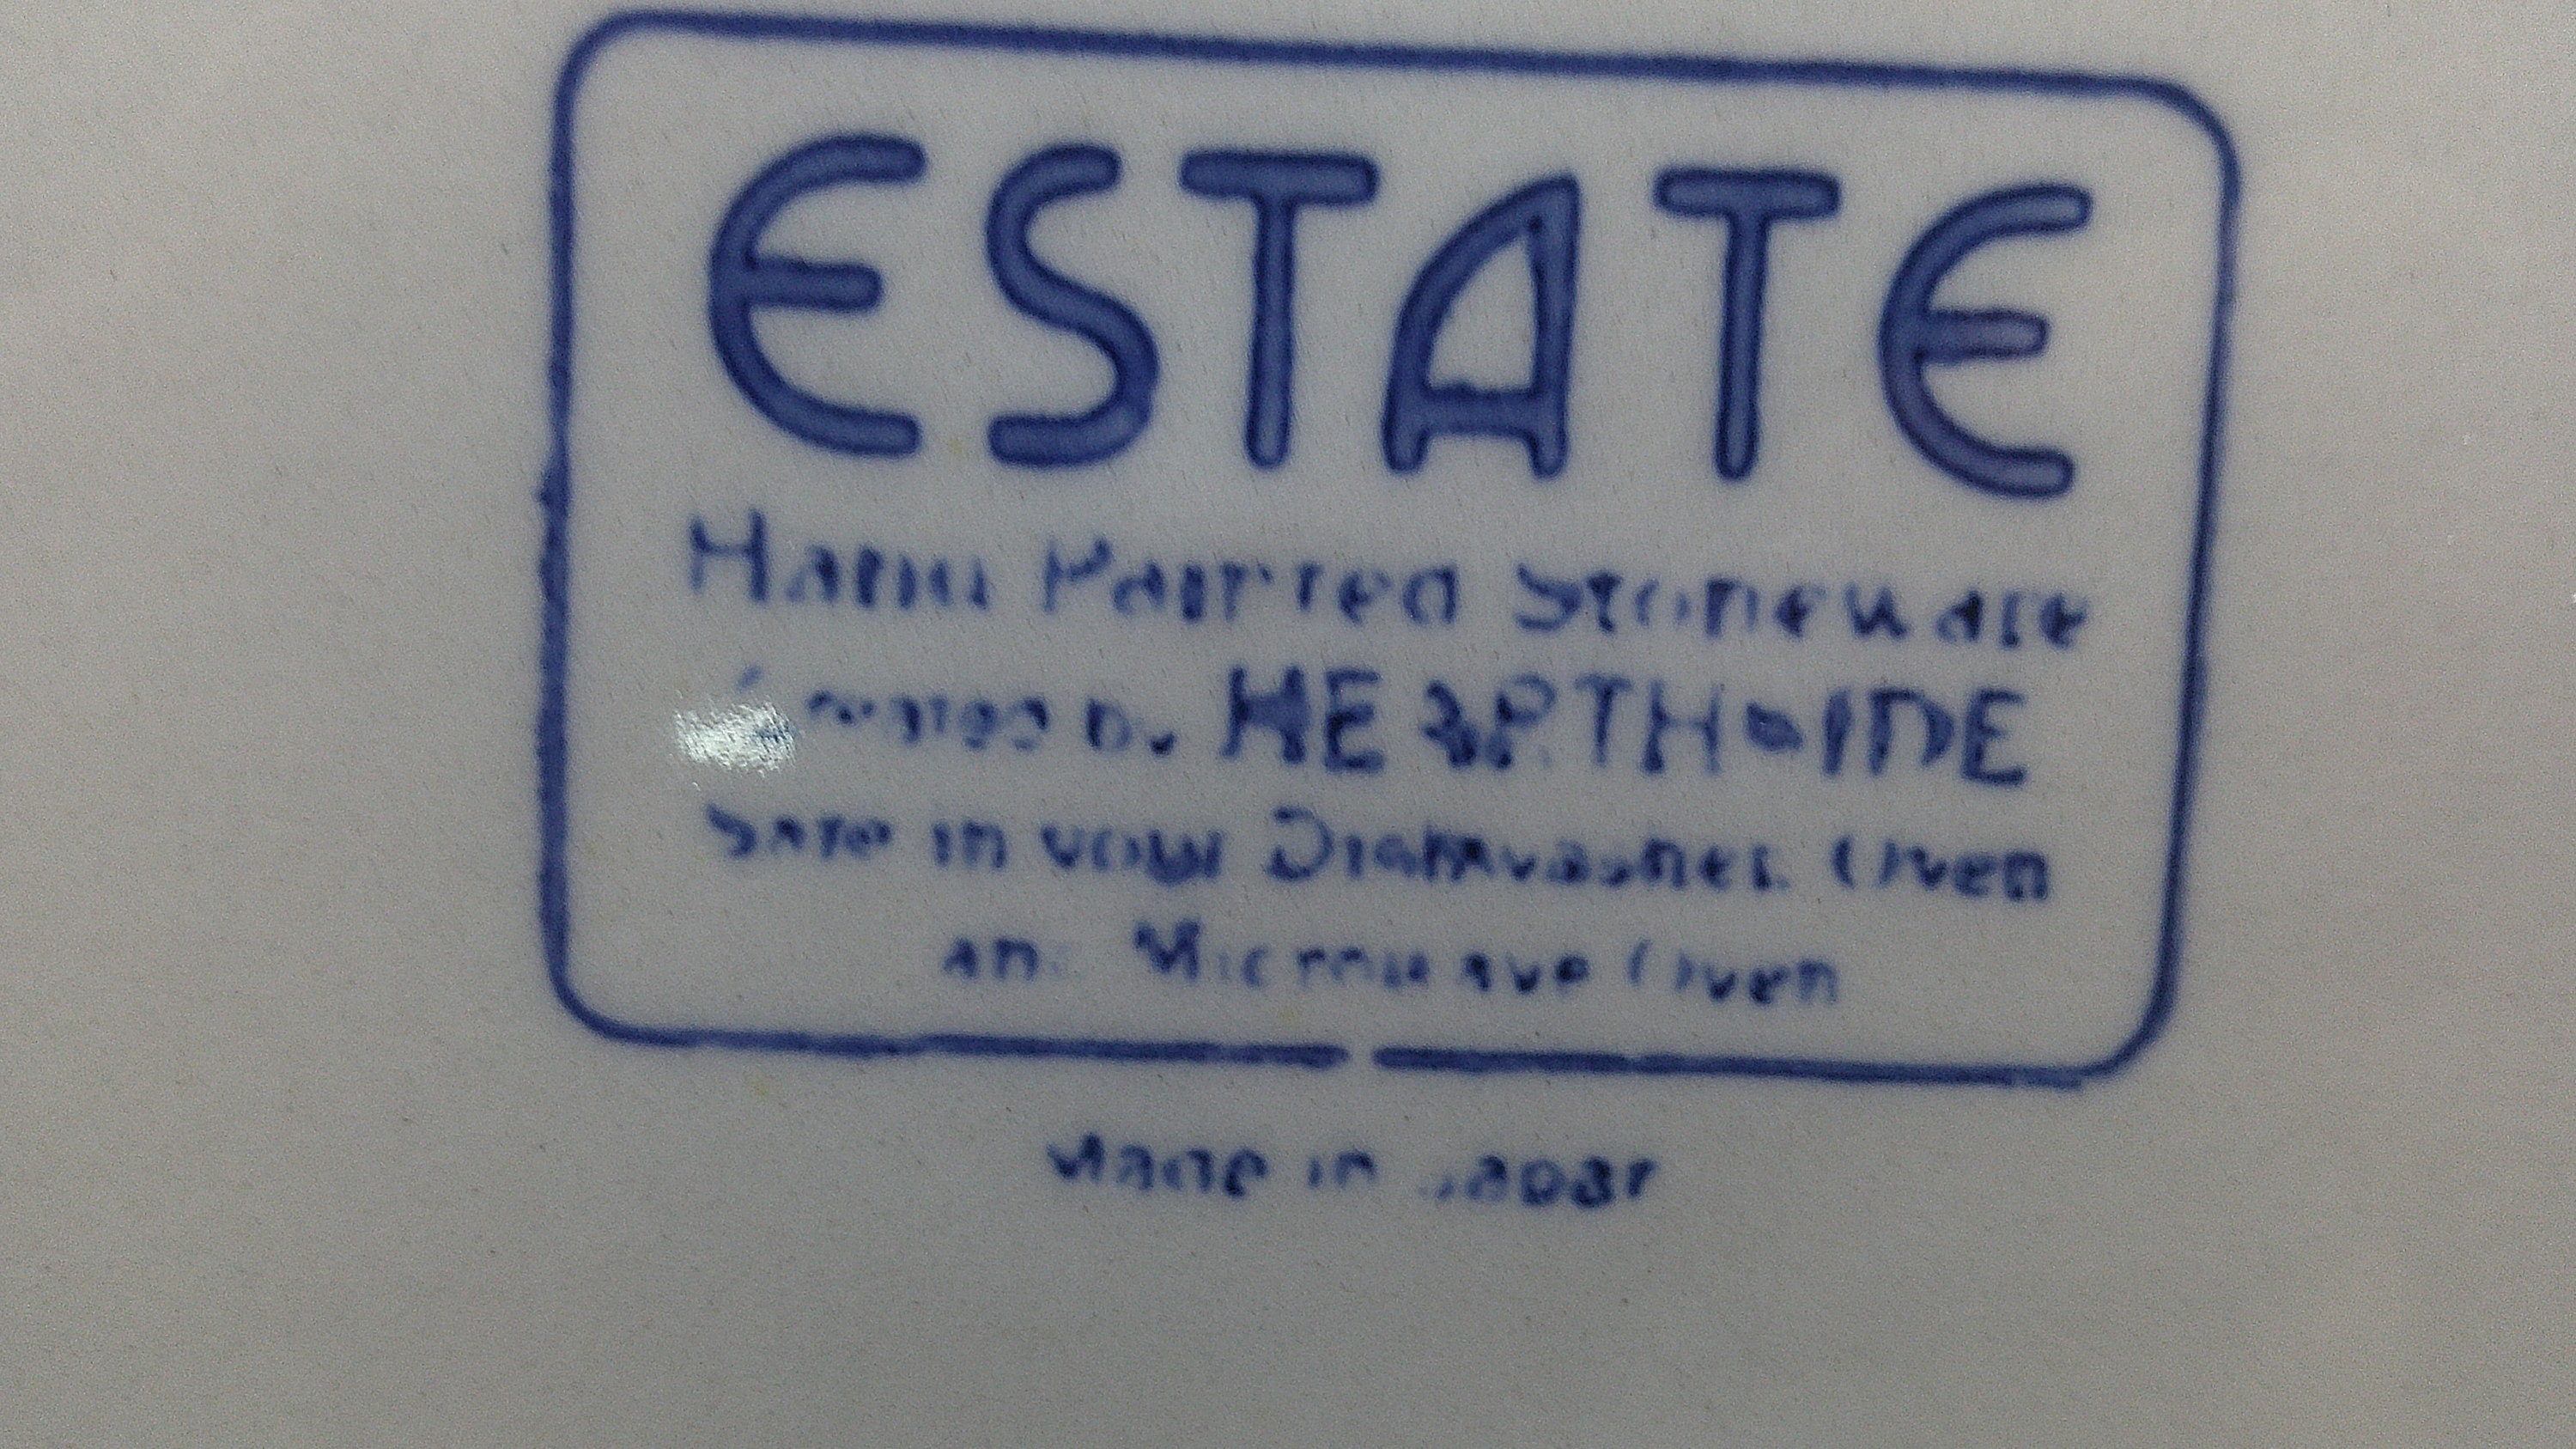 ESTATE
Hand Painted Stoneware
Created by HEARTHSIDE
Safe in your Dishwasher, Oven
and Microwave Oven
Made in Japan